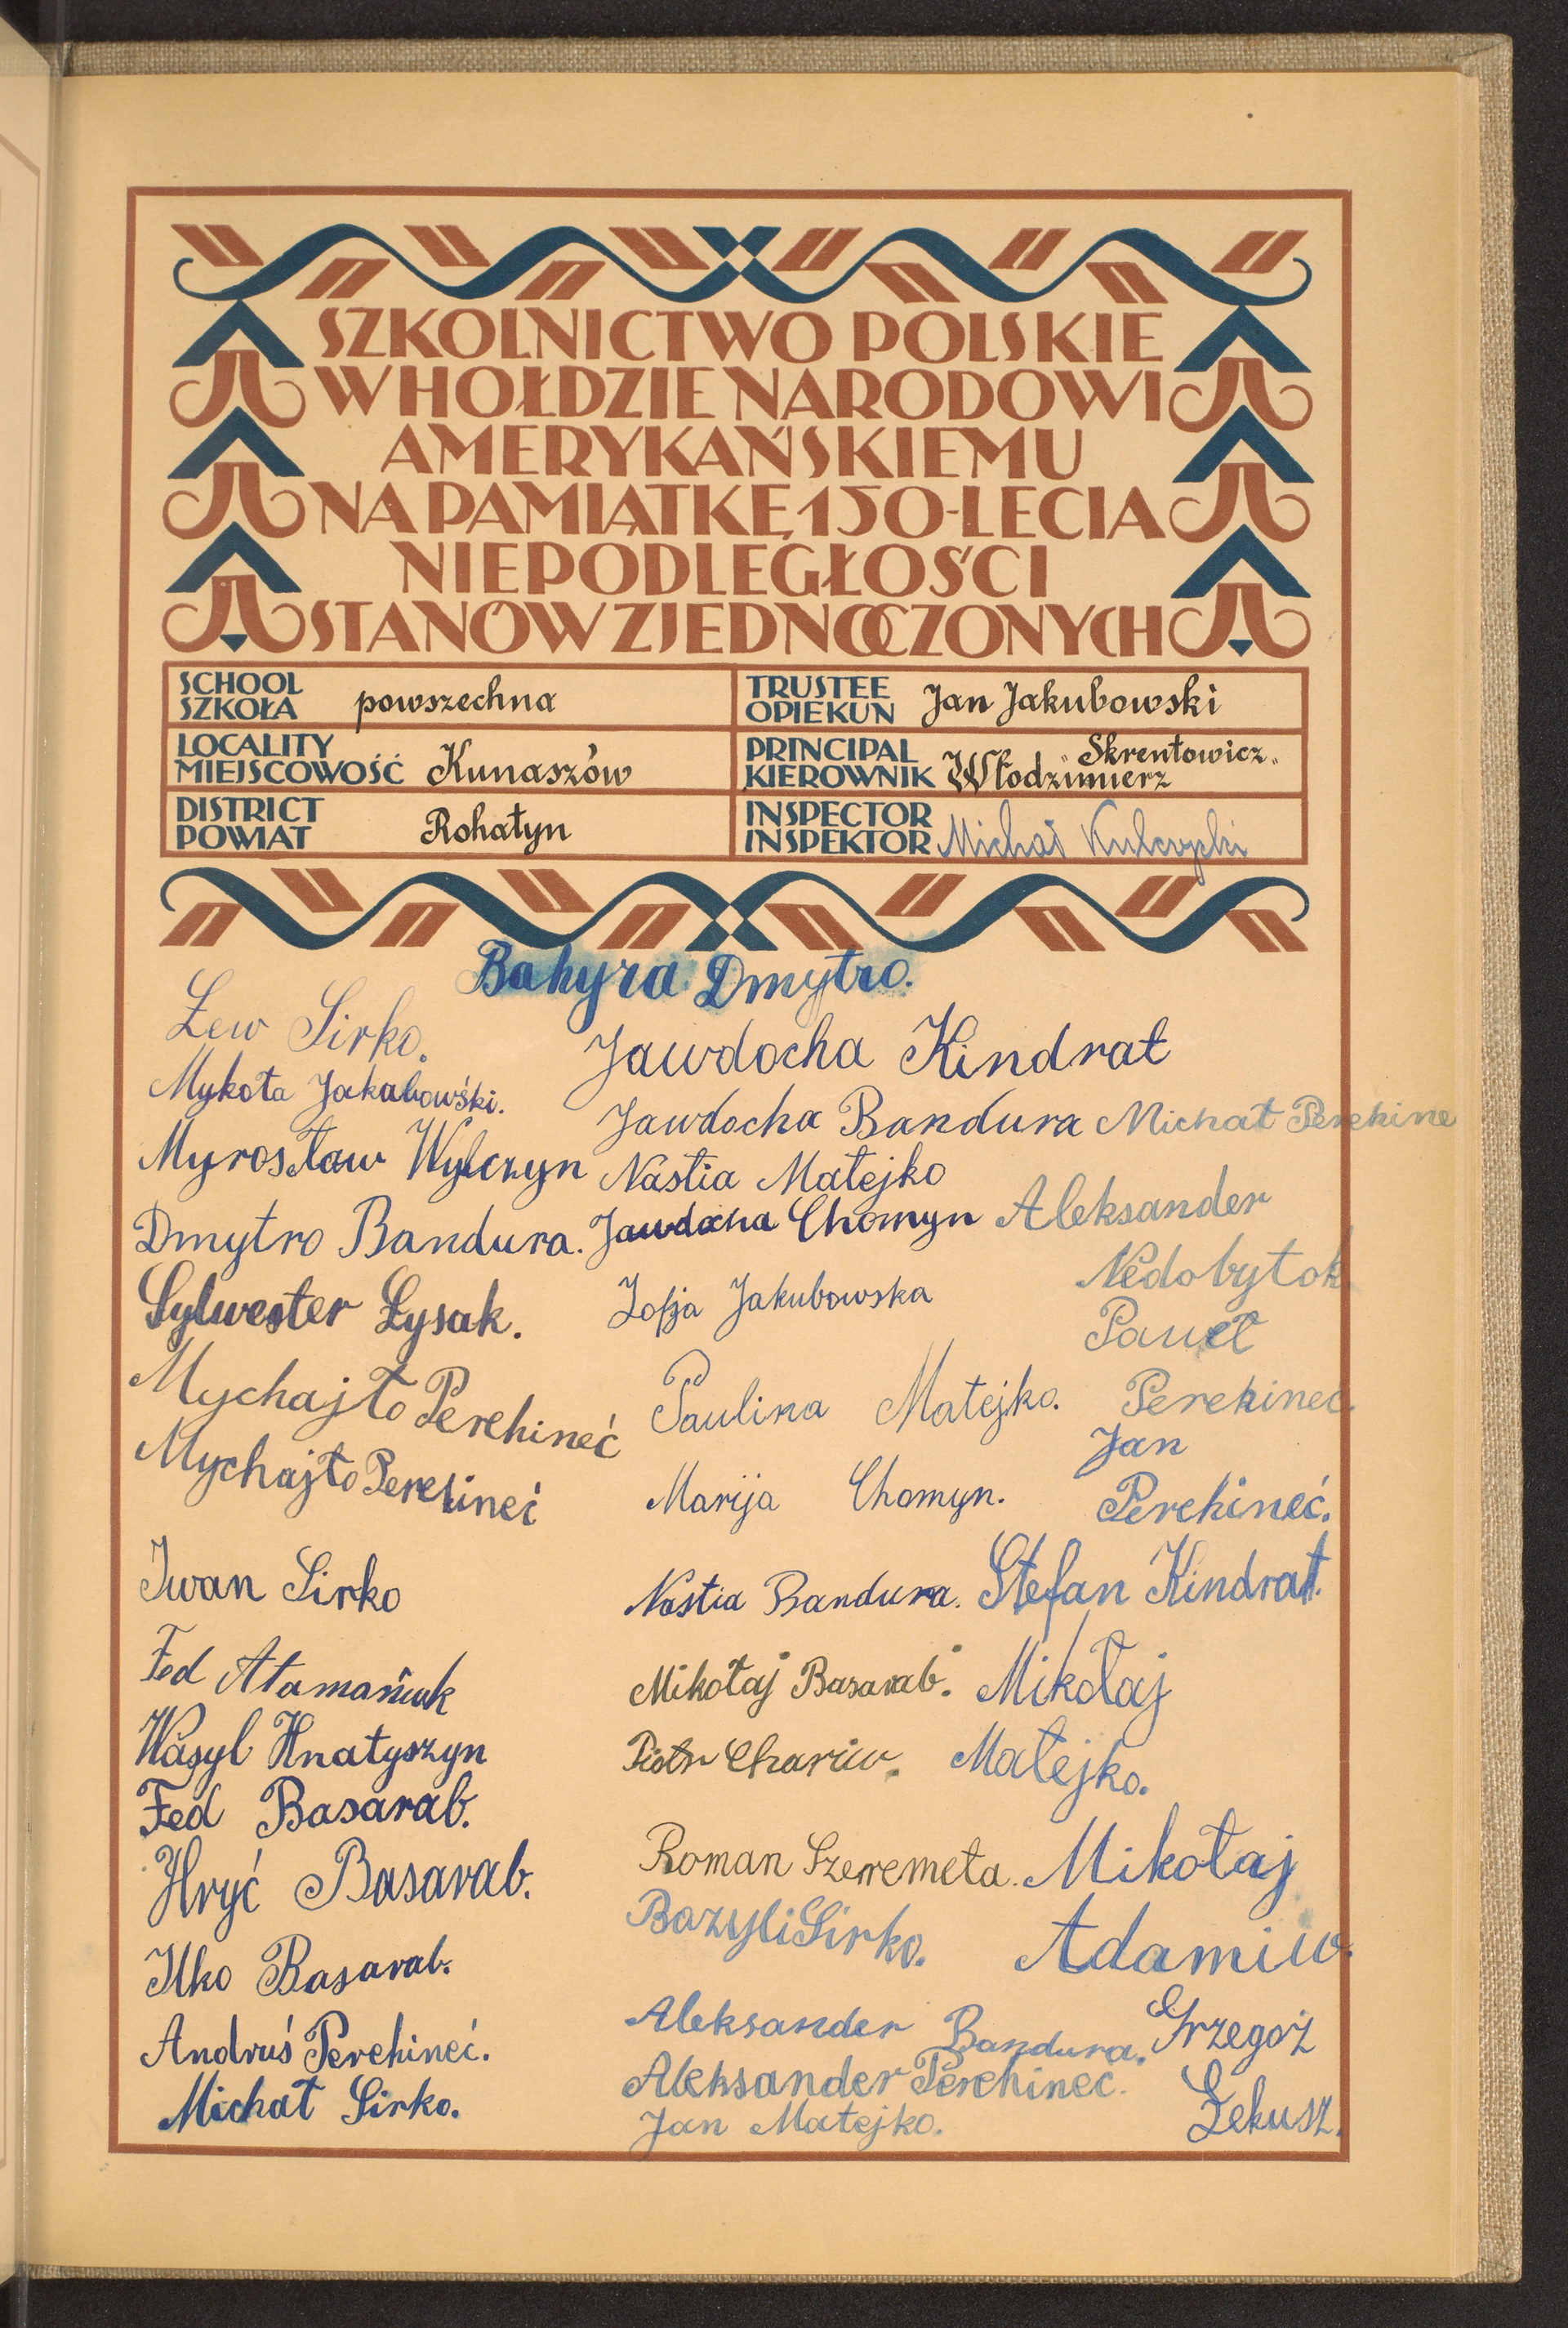 SZKOLNICTWO POLSKIE
W HOŁDZIE NARODOWI
AMERYKAŃSKIEMU
NA PAMIĄTKĘ 150-LECIA
NIEPODLEGŁOŚCI
STANÓW ZJEDNOCZONYCH
SCHOOL
SZKOŁA powszechna
TRUSTEE
OPIEKUN Jan Jakubowski
LOCALITY
MIEJSCOWOŚĆ Kunaszów
PRINCIPAL Skrentowicz
KIEROWNIK Włodzimierz
DISTRICT
POWIAT Rohatyn
INSPECTOR
INSPEKTOR Michał
Dmytro.
Lew Sirko.
Mykoła Jakubowśki.
Myrosław Wylczyn
Dmytro Bandura.
Sylwester Łysak.
Mychajło Perehineć
Mychajło Perehineć
Iwan Sirko
Fed Atamańiuk
Wasyl Hnatyszyn
Fed Basarab.
Hryć Basarab.
Ilko Basarab.
Andruś Perehineć.
Michał Sirko.
Jawdocha Kindrat
Jawdocha Bandura
Nastia Matejko
Jawdocha Chomyn
Zofja Jakubowska
Paulina Matejko.
Marija Chomyn.
Nastia Bandura.
Mikołaj Basarab.
Piotr Chariw.
Roman Szeremeta.
Bazyli Sirko.
Aleksander Bandura.
Aleksander Perehinec.
Jan Matejko.
Michał Perehine
Aleksander
Nedobytok.
Paweł
Perehinec.
Jan
Perehineć.
Stefan Kindrat.
Mikołaj
Matejko.
Mikołaj
Adamiw.
Grzegoż
Łekusz.